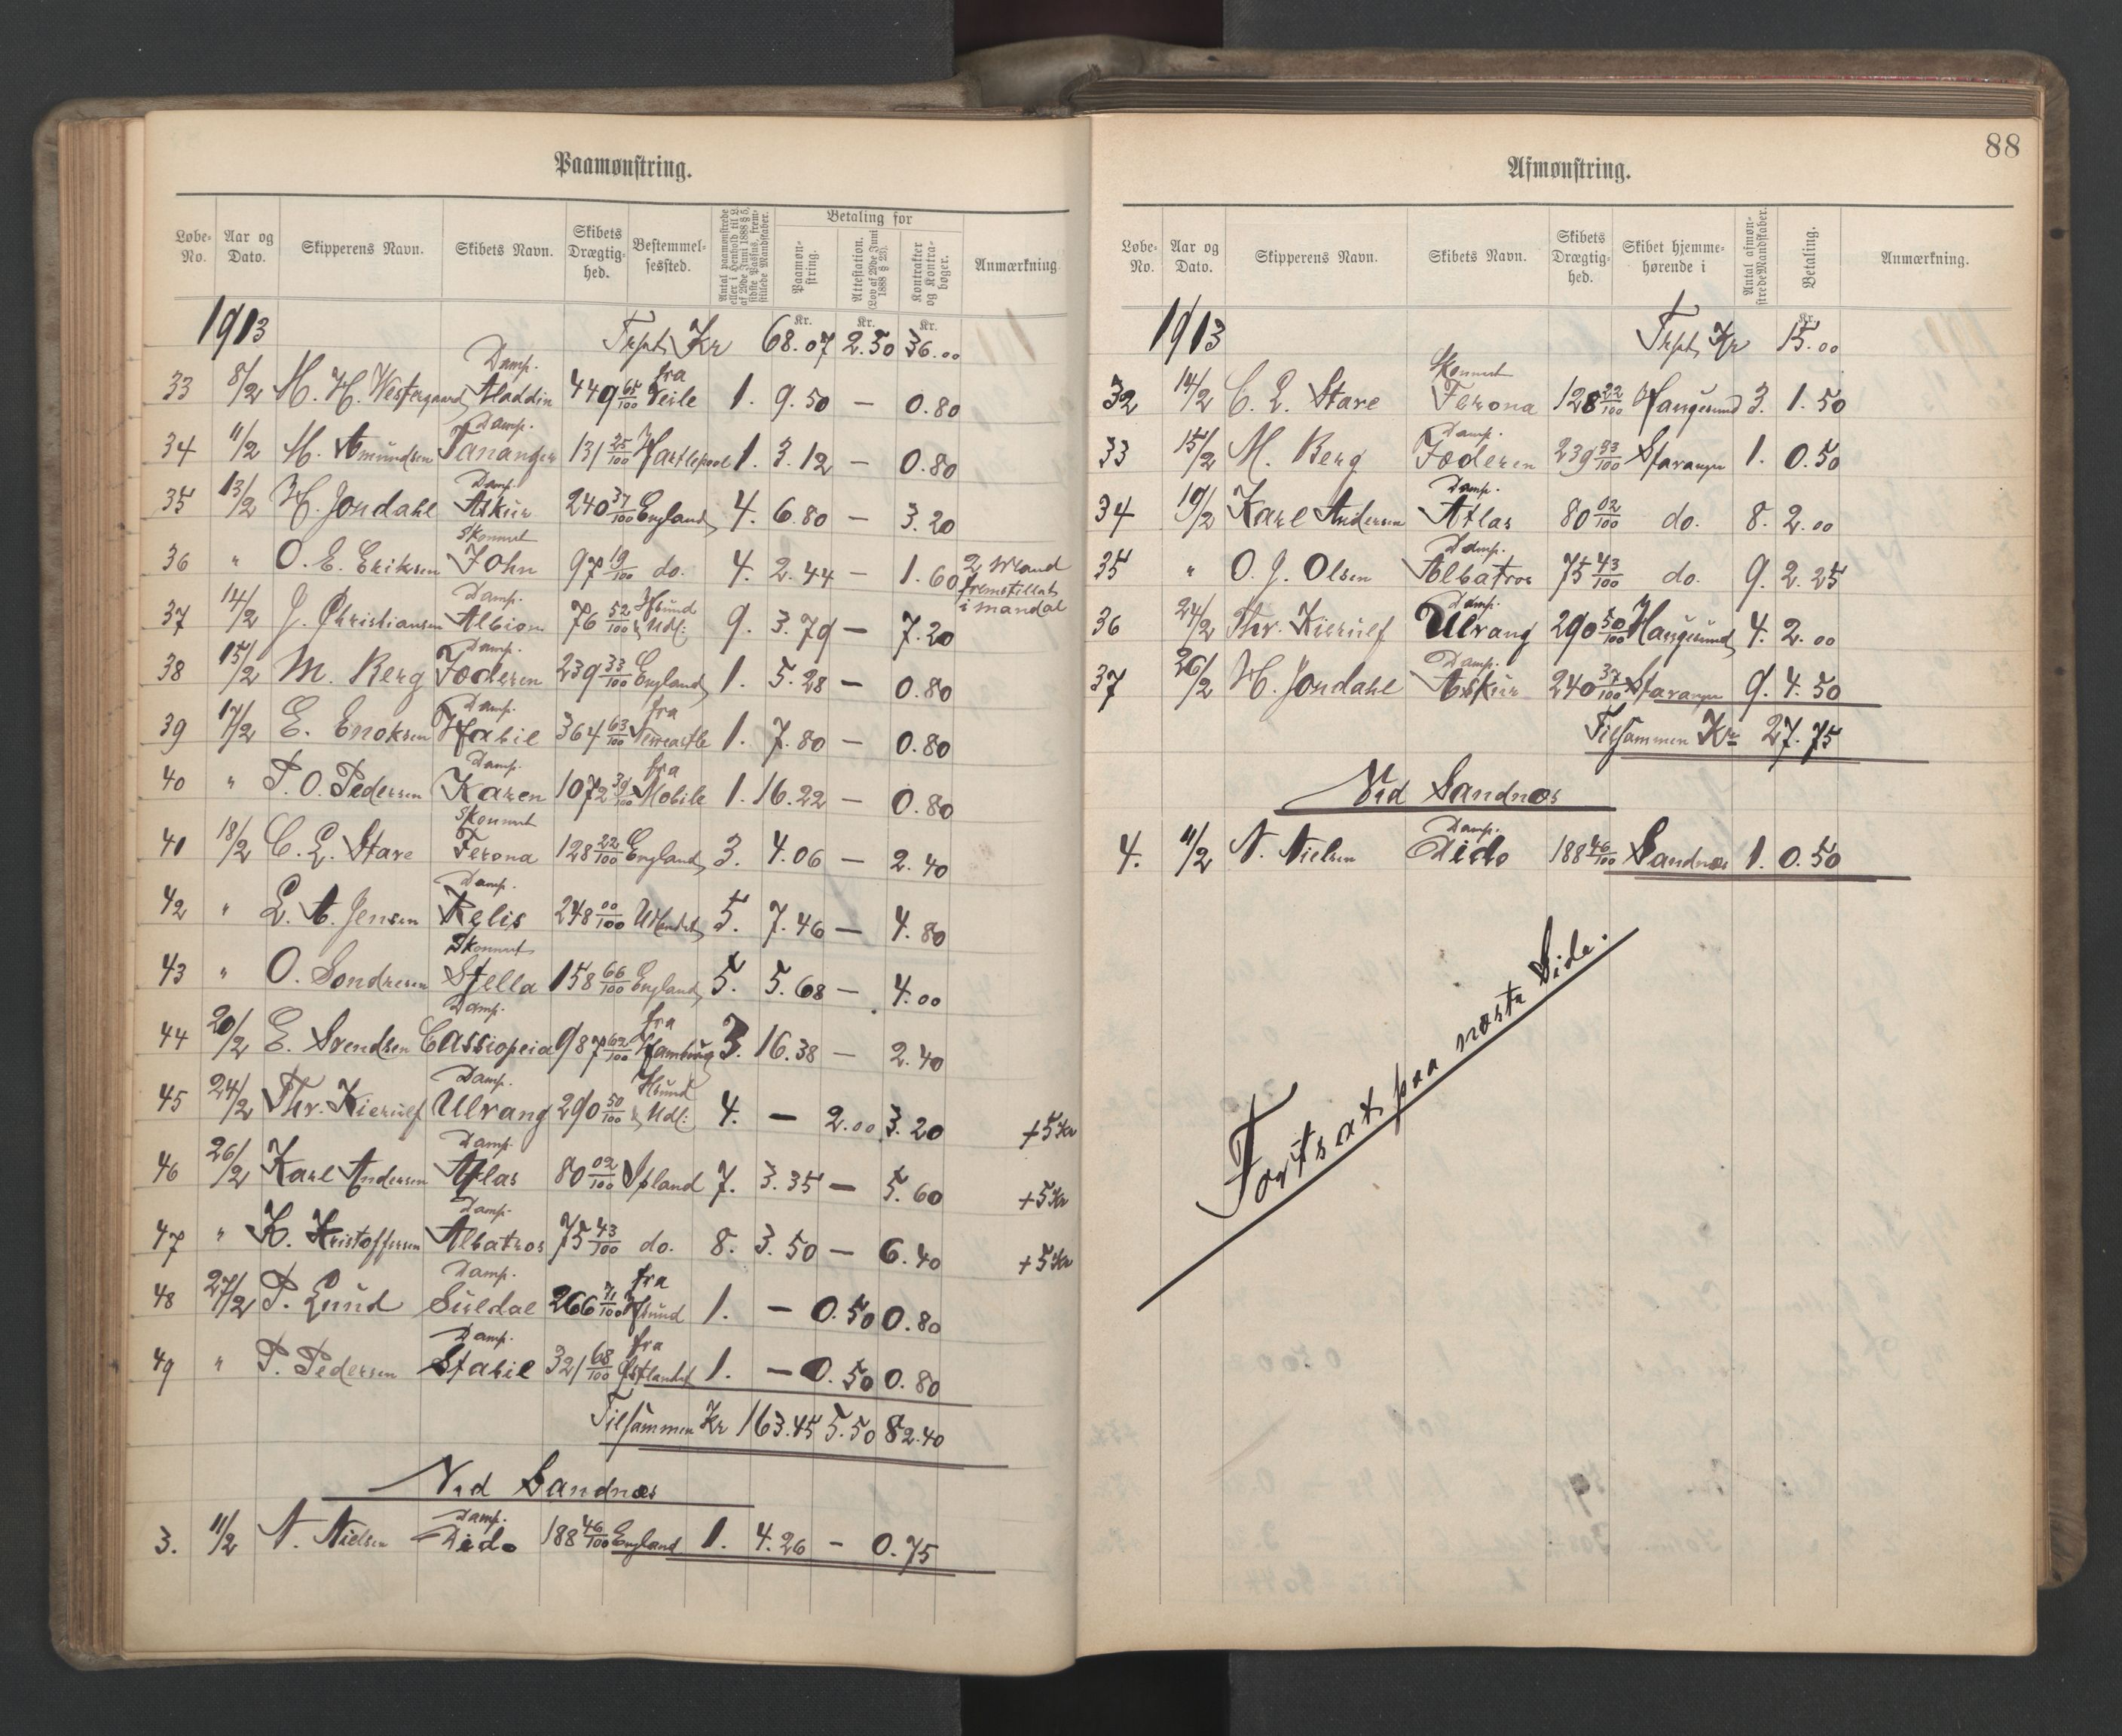 Paamønstring.
Løbe-No. Aar og Dato. Skipperens Navn. Skibets Navn. Skibets Drægtighed. Bestemmelsessted. Antal paamønstrede eller i Henhold til L. af 29de Juni 1888 § 5, sidste Passus, fremstillede Mandskaber. Betaling for Paamønstring. Attestation. (Lov af 29de Juni 1888 § 23). Kontrakter og Kontrabøger. Anmærkning
1913 Trpt. Kr Kr. 68.07 Kr. 2.50 Kr. 36.00
33 8/2 M. H. Westergaard Damp. Aladdin 449 65/100 fra Veile 1. 9.50 — 0.80
34 11/2 M. Amundsen Damp. Tananger 131 25/100 Hartlepool 1. 3.12 — 0.80
35 13/2 H. Jondahl Damp. Askur 240 37/100 England 4. 6.80 — 3.20
36 " O. E. Eriksen Skonnert John 97 19/100 do. 4. 2.44 — 1.60 2 Mand fremstillet i Mandal
37 14/2 J. Christiansen Damp. Albion 76 52/100 Hsund & Udl: 9. 3.79 — 7.20
38 15/2 M. Berg Damp. Jæderen 239 33/100 England 1. 5.28 — 0.80
39 17/2 E. Enoksen Damp. Habil 364 63/100 fra Newcastle 1. 7.80 — 0.80
40 " P. O. Pedersen Damp. Karen 1072 39/100 fra Mobile 1. 16.22 — 0.80
41 18/2 C. L. Stave Skonnert Ferona 128 22/100 England 3. 4.06 — 2.40
42 " L. A. Jensen Damp. Relis 248 00/100 Utlandet 5. 7.46 — 4.80
43 " O. Sondresen Skonnert Stella 158 66/100 England 5. 5.68 — 4.00
44 20/2 E. Svendsen Damp. Cassiopeia 987 62/100 fra Hamburg 3. 16.38 — 2.40
45 24/2 Thr. Kierulf Damp. Ulvang 290 50/100 Hsund & Udl: 4. — 2.00 3.20 +5 Kr
46 26/2 Karl Andersen Damp. Atlas 80 02/100 Island 7. 3.35 — 5.60 +5 Kr
47 " K. Kristoffersen Damp. Albatros 75 43/100 do. 8. 3.50 — 6.40 +5 Kr
48 27/2 P. Lund Damp. Suldal 266 71/100 fra Hsund 1. — 0.50 0.80
49 " P. Pedersen Damp. Stabil 321 68/100 fra Østlandet 1. — 0.50 0.80
Tilsammen Kr 163.45 5.50 82.40
Ved Sandnæs
3. 11/2 N. Nielsen Damp. Dido 188 46/100 England 1. 4.26 — 0.75
88
Afmønstring.
Løbe-No. Aar og Dato. Skipperens Navn. Skibets Navn. Skibets Drægtighed. Skibet hjemmehørende i Antal afmønstrede Mandskaber. Betaling. Anmærkning.
1913 Trpt. Kr Kr. 15.00
32 14/2 C. L. Stave Skonnert Ferona 128 22/100 Haugesund 3. 1.50
33 15/2 M. Berg Damp. Jæderen 239 33/100 Stavanger 1. 0.50
34 19/2 Karl Andersen Damp. Atlas 80 02/100 do. 8. 2.00
35 " O. J. Olsen Damp. Albatros 75 43/100 do. 9. 2.25
36 24/2 Thr. Kierulf Damp. Ulvang 290 50/100 Haugesund 4. 2.00
37 26/2 H. Jondahl Damp. Askur 240 37/100 Stavanger 9. 4.50
Tilsammen Kr 27.75
Ved Sandnæs
4. 11/2 N. Nielsen Damp. Dido 188 46/100 Sandnæs 1. 0.50
Fortsat paa næste Side.